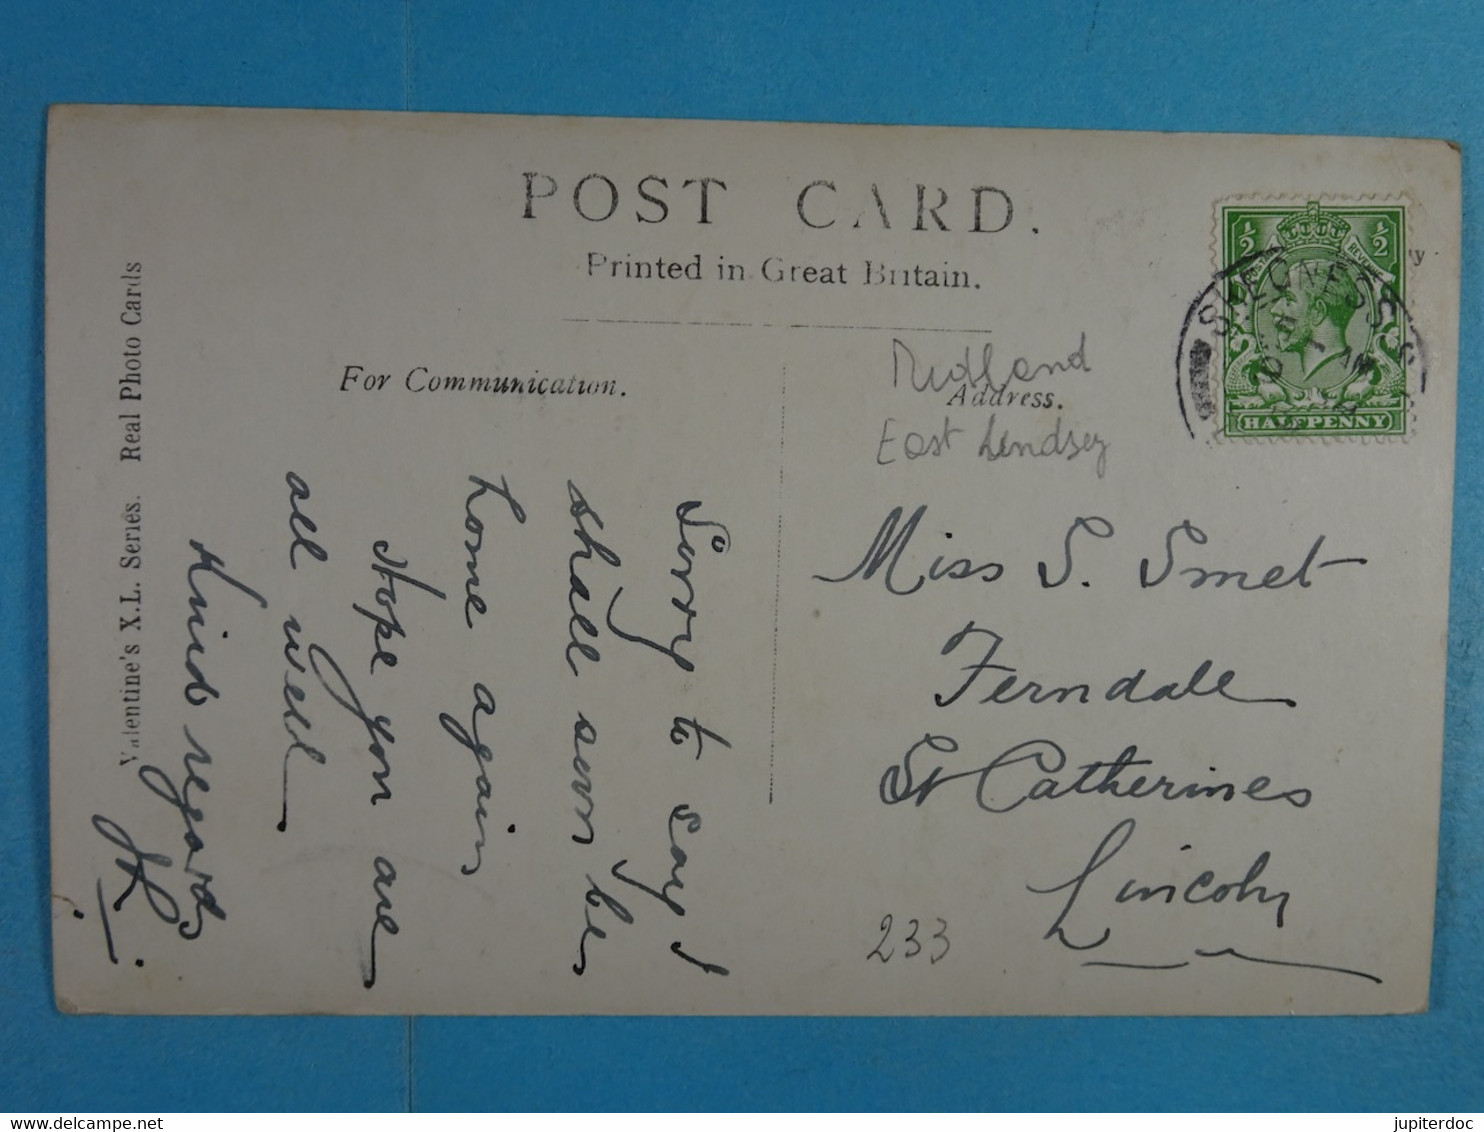 POST CARD.
Printed in Great Britain.
Valentine's X.L. Series. Real Photo Cards
For Communication.
Address.
Midland
East Lindsey
½ ½
REVENUE
HALFPENNY
SKEGNESS
Sorry to say I
shall soon be
home again
Hope you are
all well
Kind regards
Miss S. Smet
Ferndale
St Catherines
Lincoln
233
jupiterdoc